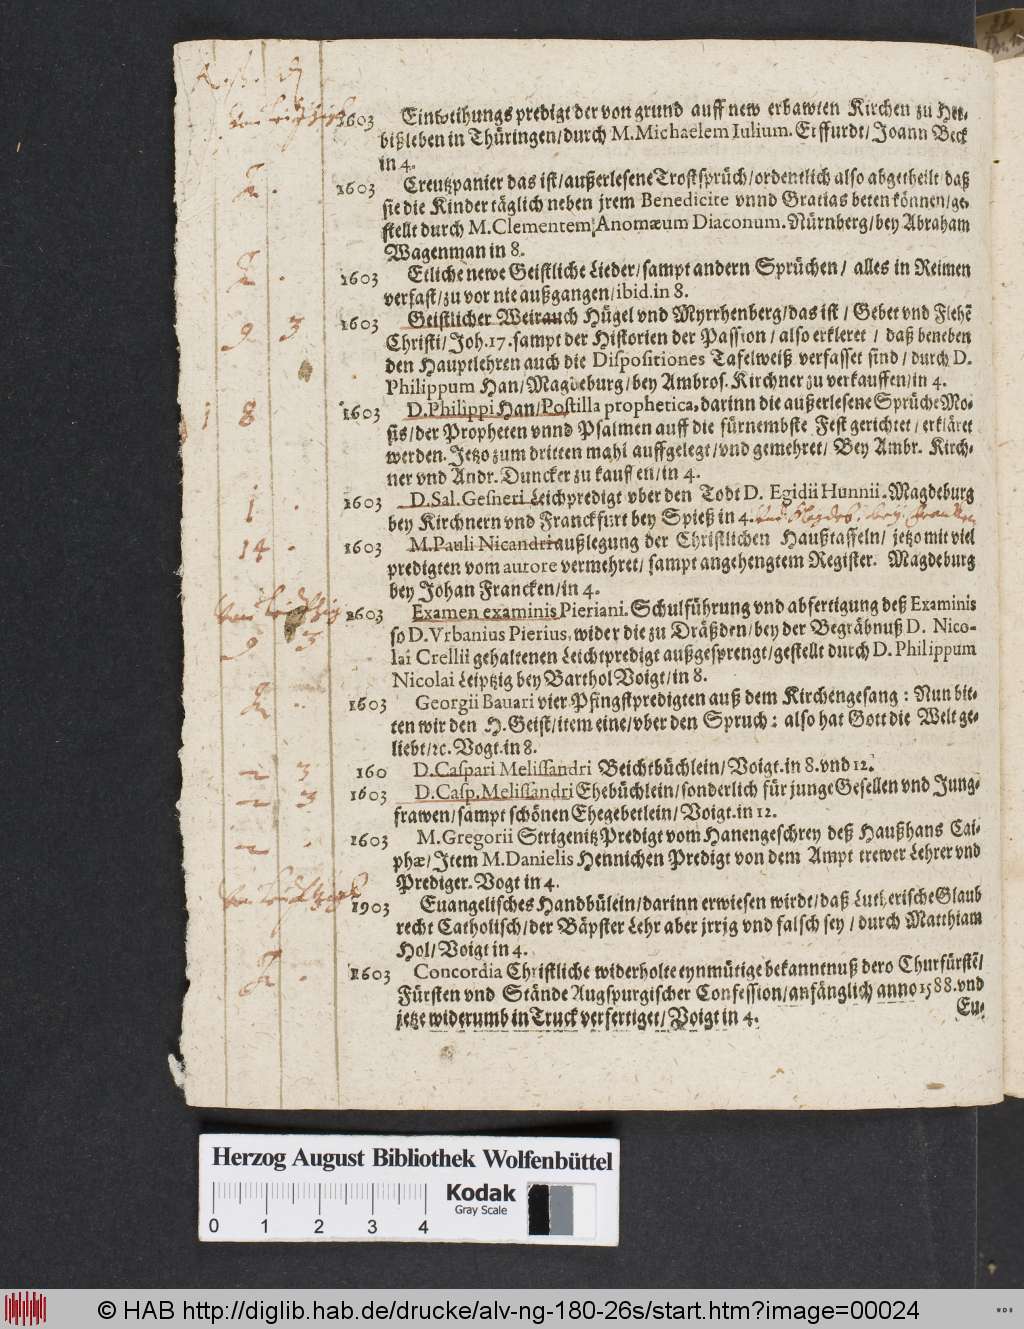 1603 Einweihungs predigt der von grund auff new erbawten Kirchen zu Her-
bißleben in Thüringen/durch M. Michaelem Iulium. Erffurdt/Joann Beck
in 4.
1603 Creutzpanier das ist/außerlesene Trostsprüch/ordentlich also abgetheilt/daß
sie die Kinder täglich neben jrem Benedicite vnnd Gratias beten können/ge-
stellt durch M. Clementem Anomæum Diaconum. Nürnberg/bey Abraham
Wagenman in 8.
1603 Etliche newe Geistliche Lieder/sampt andern Sprüchen/ alles in Reimen
verfast/zu vor nie außgangen/ibid. in 8.
1603 Geistlicher Weirauch Hügel vnd Myrrhenberg/das ist/ Gebet vnd Flehē
Christi/Joh. 17. sampt der Historien der Passion/also erkleret/ daß beneben
den Hauptlehren auch die Dispositiones Tafelweiß verfasset sind/durch D.
Philippum Han/Magdeburg/bey Ambros. Kirchner zu verkauffen/in 4.
18
1603 D. Philippi Han/Postilla prophetica, darinn die außerlesene Sprüche Mo-
sis/der Propheten vnnd Psalmen auff die fürnembste Fest gerichtet/erkläret
werden. Jetzo zum dritten mahl auffgelegt/vnd gemehret/ Bey Ambr. Kirch-
ner vnd Andr. Duncker zu kauffen/in 4.
1603 D. Sal. Gesneri Leichpredigt vber den Todt D. Egidii Hunnii. Magdeburg
bey Kirchnern vnd Franckfurt bey Spieß in 4.
14 1603 M. Pauli Nicandri außlegung der Christlichen Haußtaffeln/ jetzo mit viel
predigten vom autore vermehret/ sampt angehengtem Register. Magdeburg
bey Johan Francken/in 4.
1603 Examen examinis Pieriani. Schulführung vnd abfertigung deß Examinis
9 3 so D. Vrbanius Pierius, wider die zu Dräßden/bey der Begräbnuß D. Nico-
lai Crellii gehaltenen Leichtpredigt außgesprengt/gestellt durch D. Philippum
Nicolai Leiptzig bey Barthol Voigt/in 8.
1603 Georgii Bauari vier Pfingstpredigten auß dem Kirchengesang: Nun bit-
ten wir den H. Geist/item eine/vber den Spruch: also hat Gott die Welt ge-
liebt/ꝛc. Vogt. in 8.
2 3 160 D. Caspari Melissandri Beichtbüchlein/Voigt. in 8. vnd 12.
2 3 1603 D. Casp. Melissandri Ehebüchlein/sonderlich für junge Gesellen vnd Jung-
frawen/sampt schönen Ehegebetlein/Voigt. in 12.
2 1603 M. Gregorii Strigenitz Predigt vom Hanengeschrey deß Haußhans Cai-
phæ/Item M. Danielis Hennichen Predigt von dem Ampt trewer Lehrer vnd
Prediger. Vogt in 4.
1903 Euangelisches Handbülein/darinn erwiesen wirdt/daß Lutherische Glaub
recht Catholisch/der Bäpster Lehr aber jrrig vnd falsch sey/durch Matthiam
Hol/Voigt in 4.
1603 Concordia Christliche widerholte eynmütige bekanntnuß dero Churfürstē/
Fürsten vnd Stände Augspurgischer Confession/anfänglich anno 1588. vnd
jetze widerumb in Truck verfertiget/Voigt in 4.
Eu-
Herzog August Bibliothek Wolfenbüttel
0 1 2 3 4
Kodak
Gray Scale
© HAB http://diglib.hab.de/drucke/alv-ng-180-26s/start.htm?image=00024